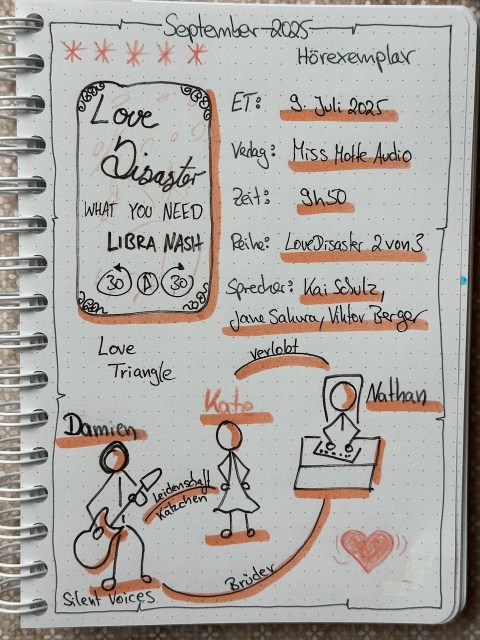 September 2025
* * * * *
Hörexemplar
Love
Disaster
WHAT YOU NEED
LIBRA NASH
30 30
ET: 9. Juli 2025
Verlag: Miss Motte Audio
Zeit: 9h50
Reihe: Love Disaster 2 von 3
Sprecher: Kai Schulz,
Jane Sakura, Viktor Berger
Love
Triangle
verlobt
Kate
Nathan
Damien
Leidenschaft
Kätzchen
Brüder
Silent Voices